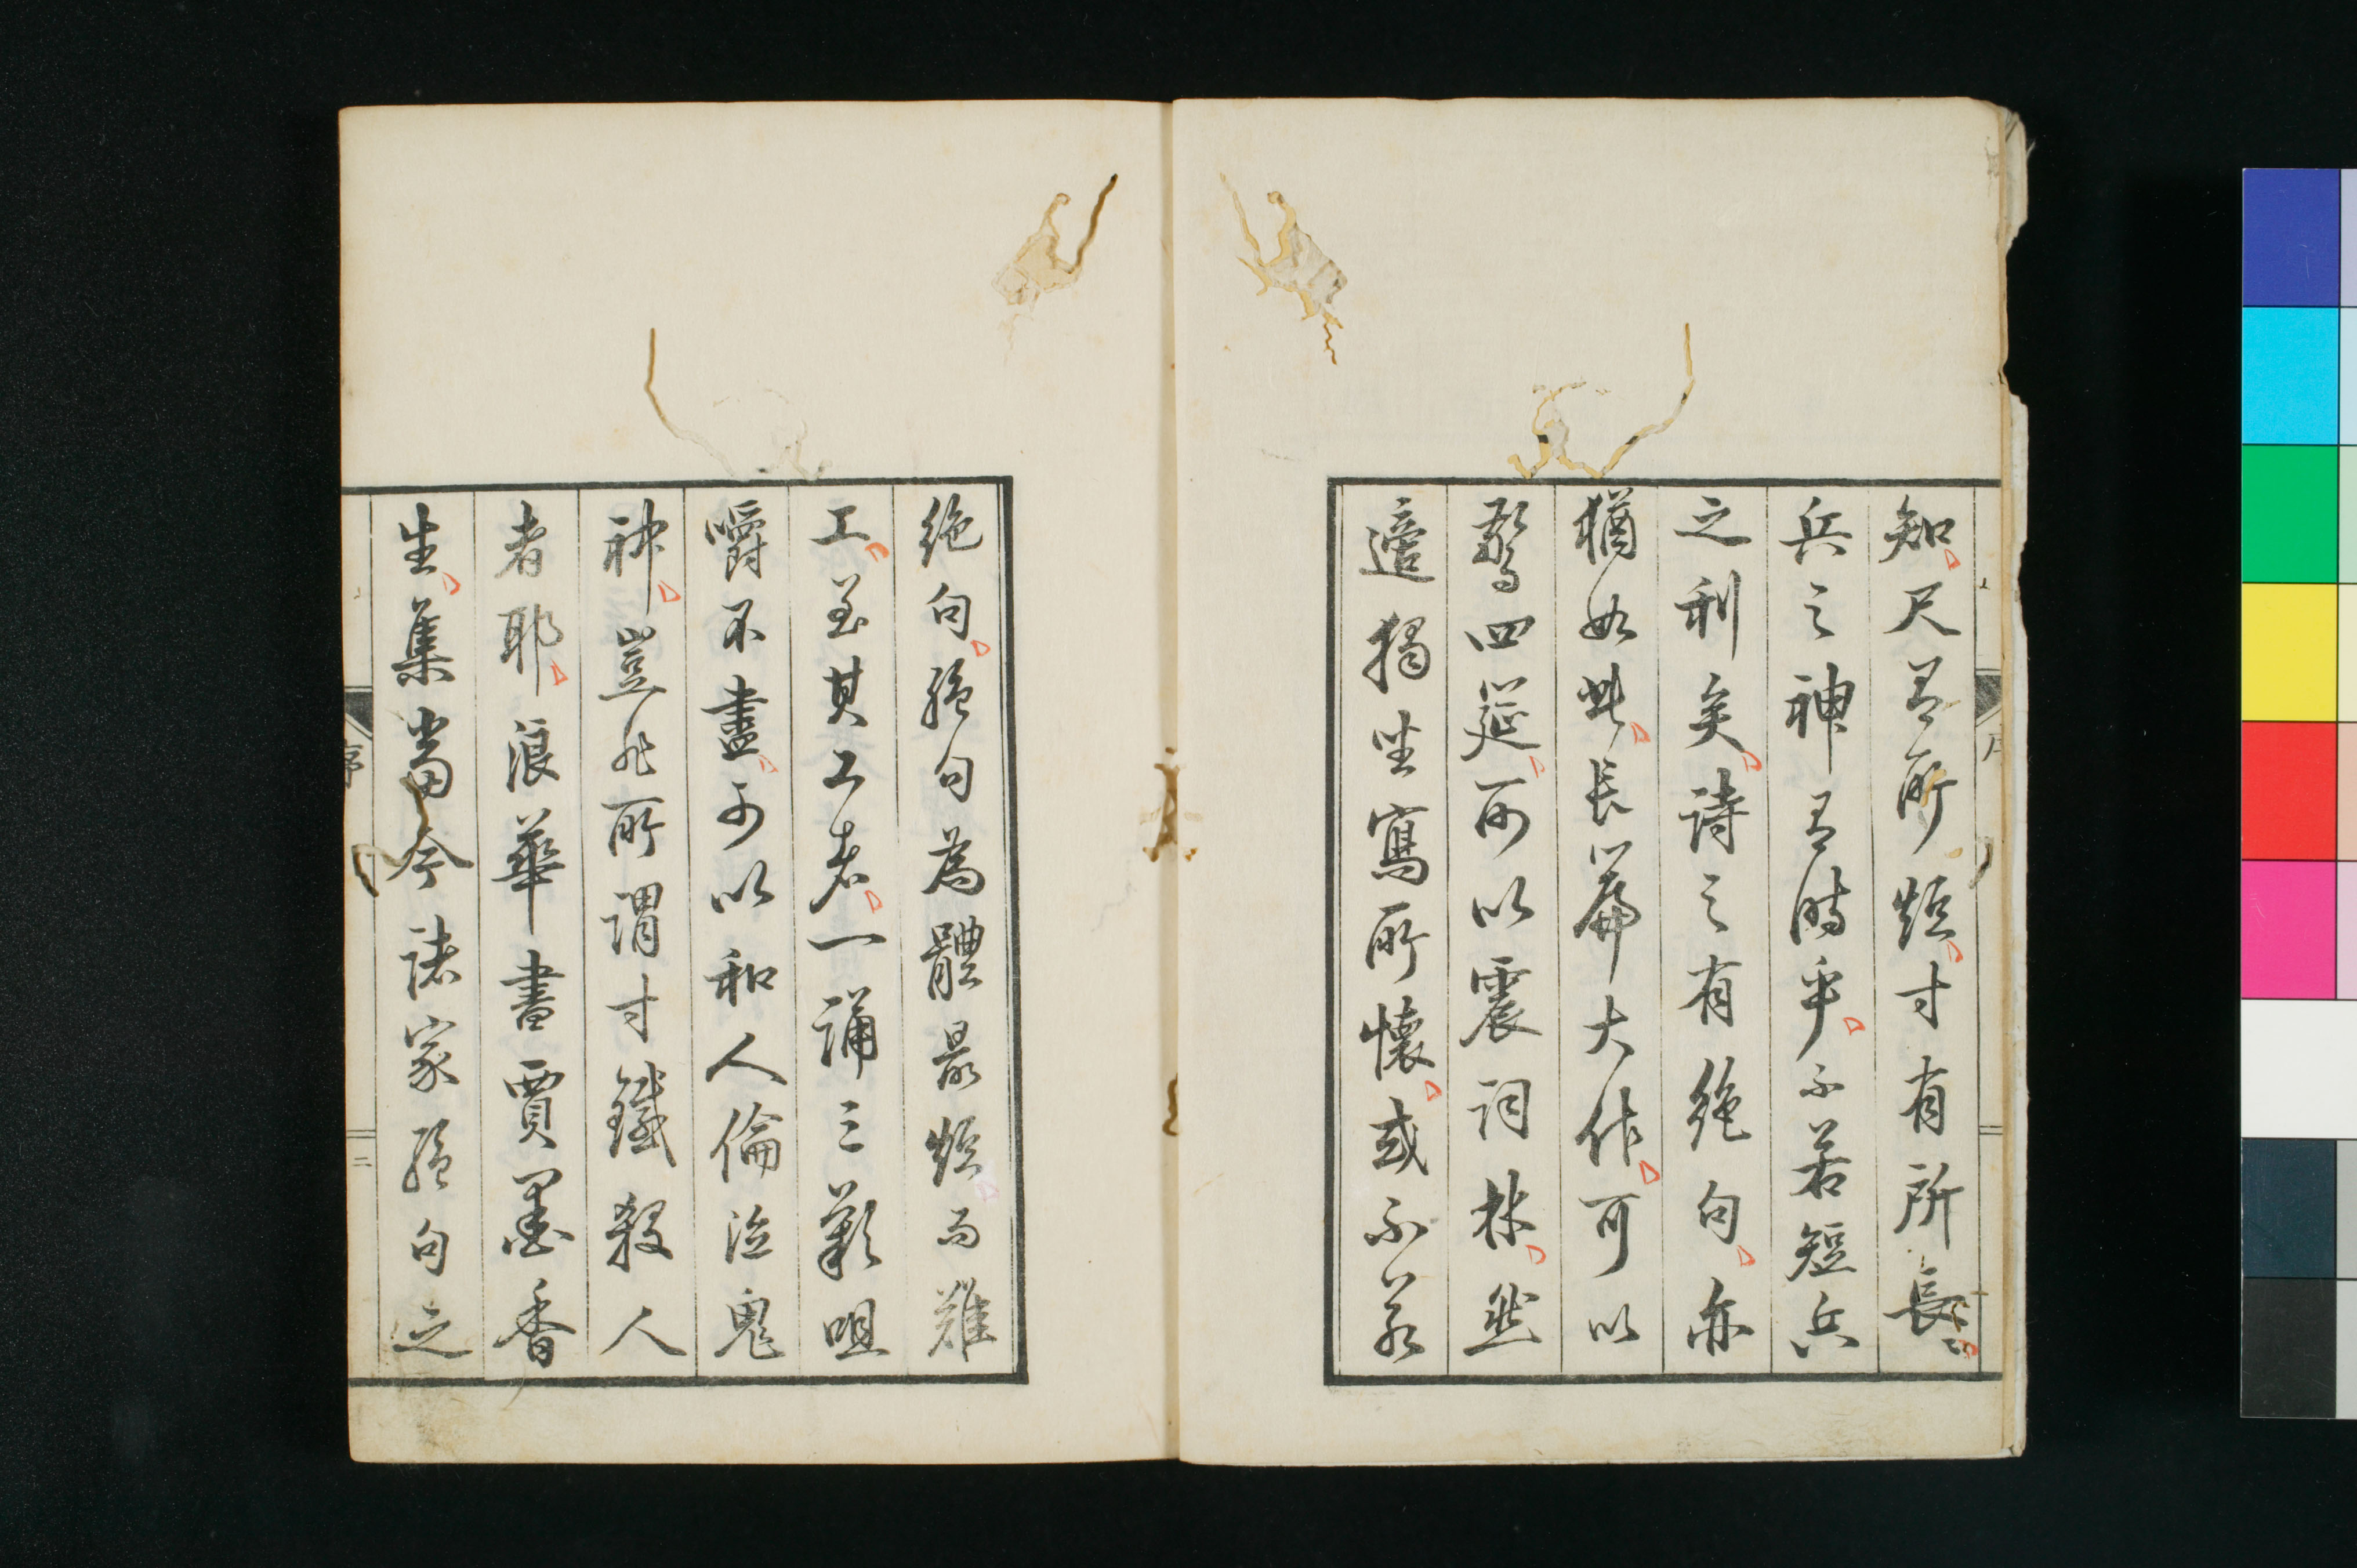 知尺有所短寸有所長〻
兵之神有時乎不若短兵
之利矣詩之有絶句亦
猶如此長篇大作可以
驚四筵可以震詞林然
適獨坐寫所懷或不若
絶句絶句為體最短而難
工至其工者一誦三歎咀
嚼不盡可以和人倫泣鬼
神豈非所謂寸鐵殺人
者耶浪華書賈墨香
生集當今諸家絶句之
序
二